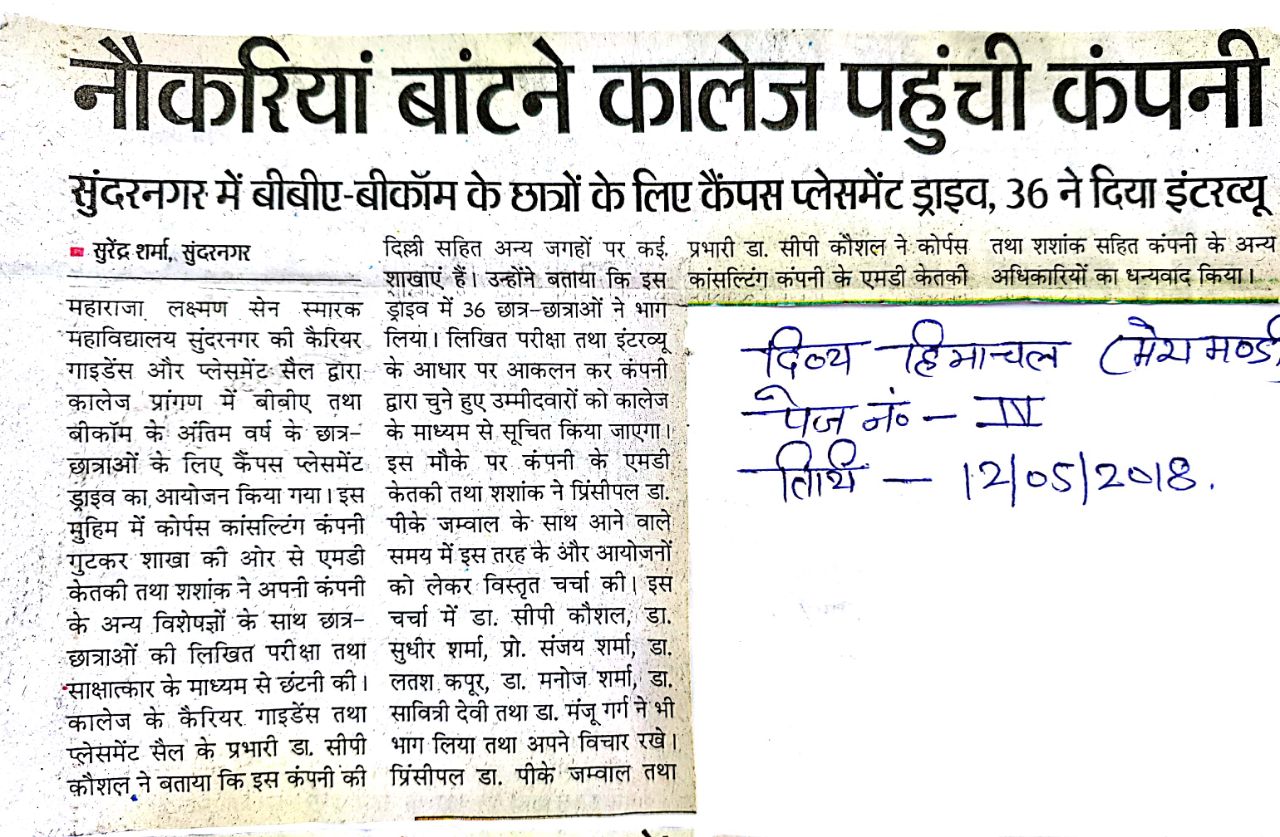 नौकरियां बांटने कालेज पहुंची कंपनी
सुंदरनगर में बीबीए-बीकॉम के छात्रों के लिए कैंपस प्लेसमेंट ड्राइव, 36 ने दिया इंटरव्यू
सुरेंद्र शर्मा, सुंदरनगर
महाराजा लक्ष्मण सेन स्मारक
महाविद्यालय सुंदरनगर की कैरियर
गाइडेंस और प्लेसमेंट सैल द्वारा
कालेज प्रांगण में बीबीए तथा
बीकॉम के अंतिम वर्ष के छात्र-
छात्राओं के लिए कैंपस प्लेसमेंट
ड्राइव का आयोजन किया गया। इस
मुहिम में कोर्पस कांसल्टिंग कंपनी
गुटकर शाखा की ओर से एमडी
केतकी तथा शशांक ने अपनी कंपनी
के अन्य विशेषज्ञों के साथ छात्र-
छात्राओं की लिखित परीक्षा तथा
साक्षात्कार के माध्यम से छंटनी की।
कालेज के कैरियर गाइडेंस तथा
प्लेसमेंट सैल के प्रभारी डा. सीपी
कौशल ने बताया कि इस कंपनी की
दिल्ली सहित अन्य जगहों पर कई
शाखाएं हैं। उन्होंने बताया कि इस
ड्राइव में 36 छात्र-छात्राओं ने भाग
लिया। लिखित परीक्षा तथा इंटरव्यू
के आधार पर आकलन कर कंपनी
द्वारा चुने हुए उम्मीदवारों को कालेज
के माध्यम से सूचित किया जाएगा।
इस मौके पर कंपनी के एमडी
केतकी तथा शशांक ने प्रिंसीपल डा.
पीके जम्वाल के साथ आने वाले
समय में इस तरह के और आयोजनों
को लेकर विस्तृत चर्चा की। इस
चर्चा में डा. सीपी कौशल, डा.
सुधीर शर्मा, प्रो. संजय शर्मा, डा.
लतश कपूर, डा. मनोज शर्मा, डा.
सावित्री देवी तथा डा. मंजू गर्ग ने भी
भाग लिया तथा अपने विचार रखे।
प्रिंसीपल डा. पीके जम्वाल तथा
प्रभारी डा. सीपी कौशल ने कोर्पस
कांसल्टिंग कंपनी के एमडी केतकी
तथा शशांक सहित कंपनी के अन्य
अधिकारियों का धन्यवाद किया।
दिव्य हिमाचल (मेरा मण्डी
पेज नं० - IV
तिथि - 12/05/2018.